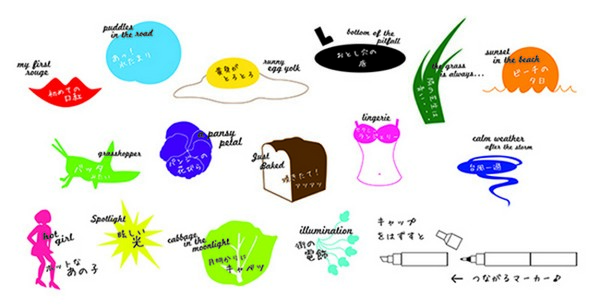 my first
rouge
初めての
口紅
puddles
in the road
あっ!
水たまり
runny
egg yolk
黄身が
とろとろ
bottom of the
pitfall
おとし穴の
底
the grass
is always...
sunset
in the beach
ビーチの
夕日
grasshopper
バッタ
みたい
a pansy
petal
パンジーの
花びら
Just
Baked
焼きたて!
アツアツ
lingerie
calm weather
after the storm
台風一過
hot
girl
ホットな
あの子
Spotlight
眩しい
光
cabbage
in the
moonlight
月明かりに
キャベツ
illumination
街の
電飾
キャップ
をはずすと
← つながるマーカー♪